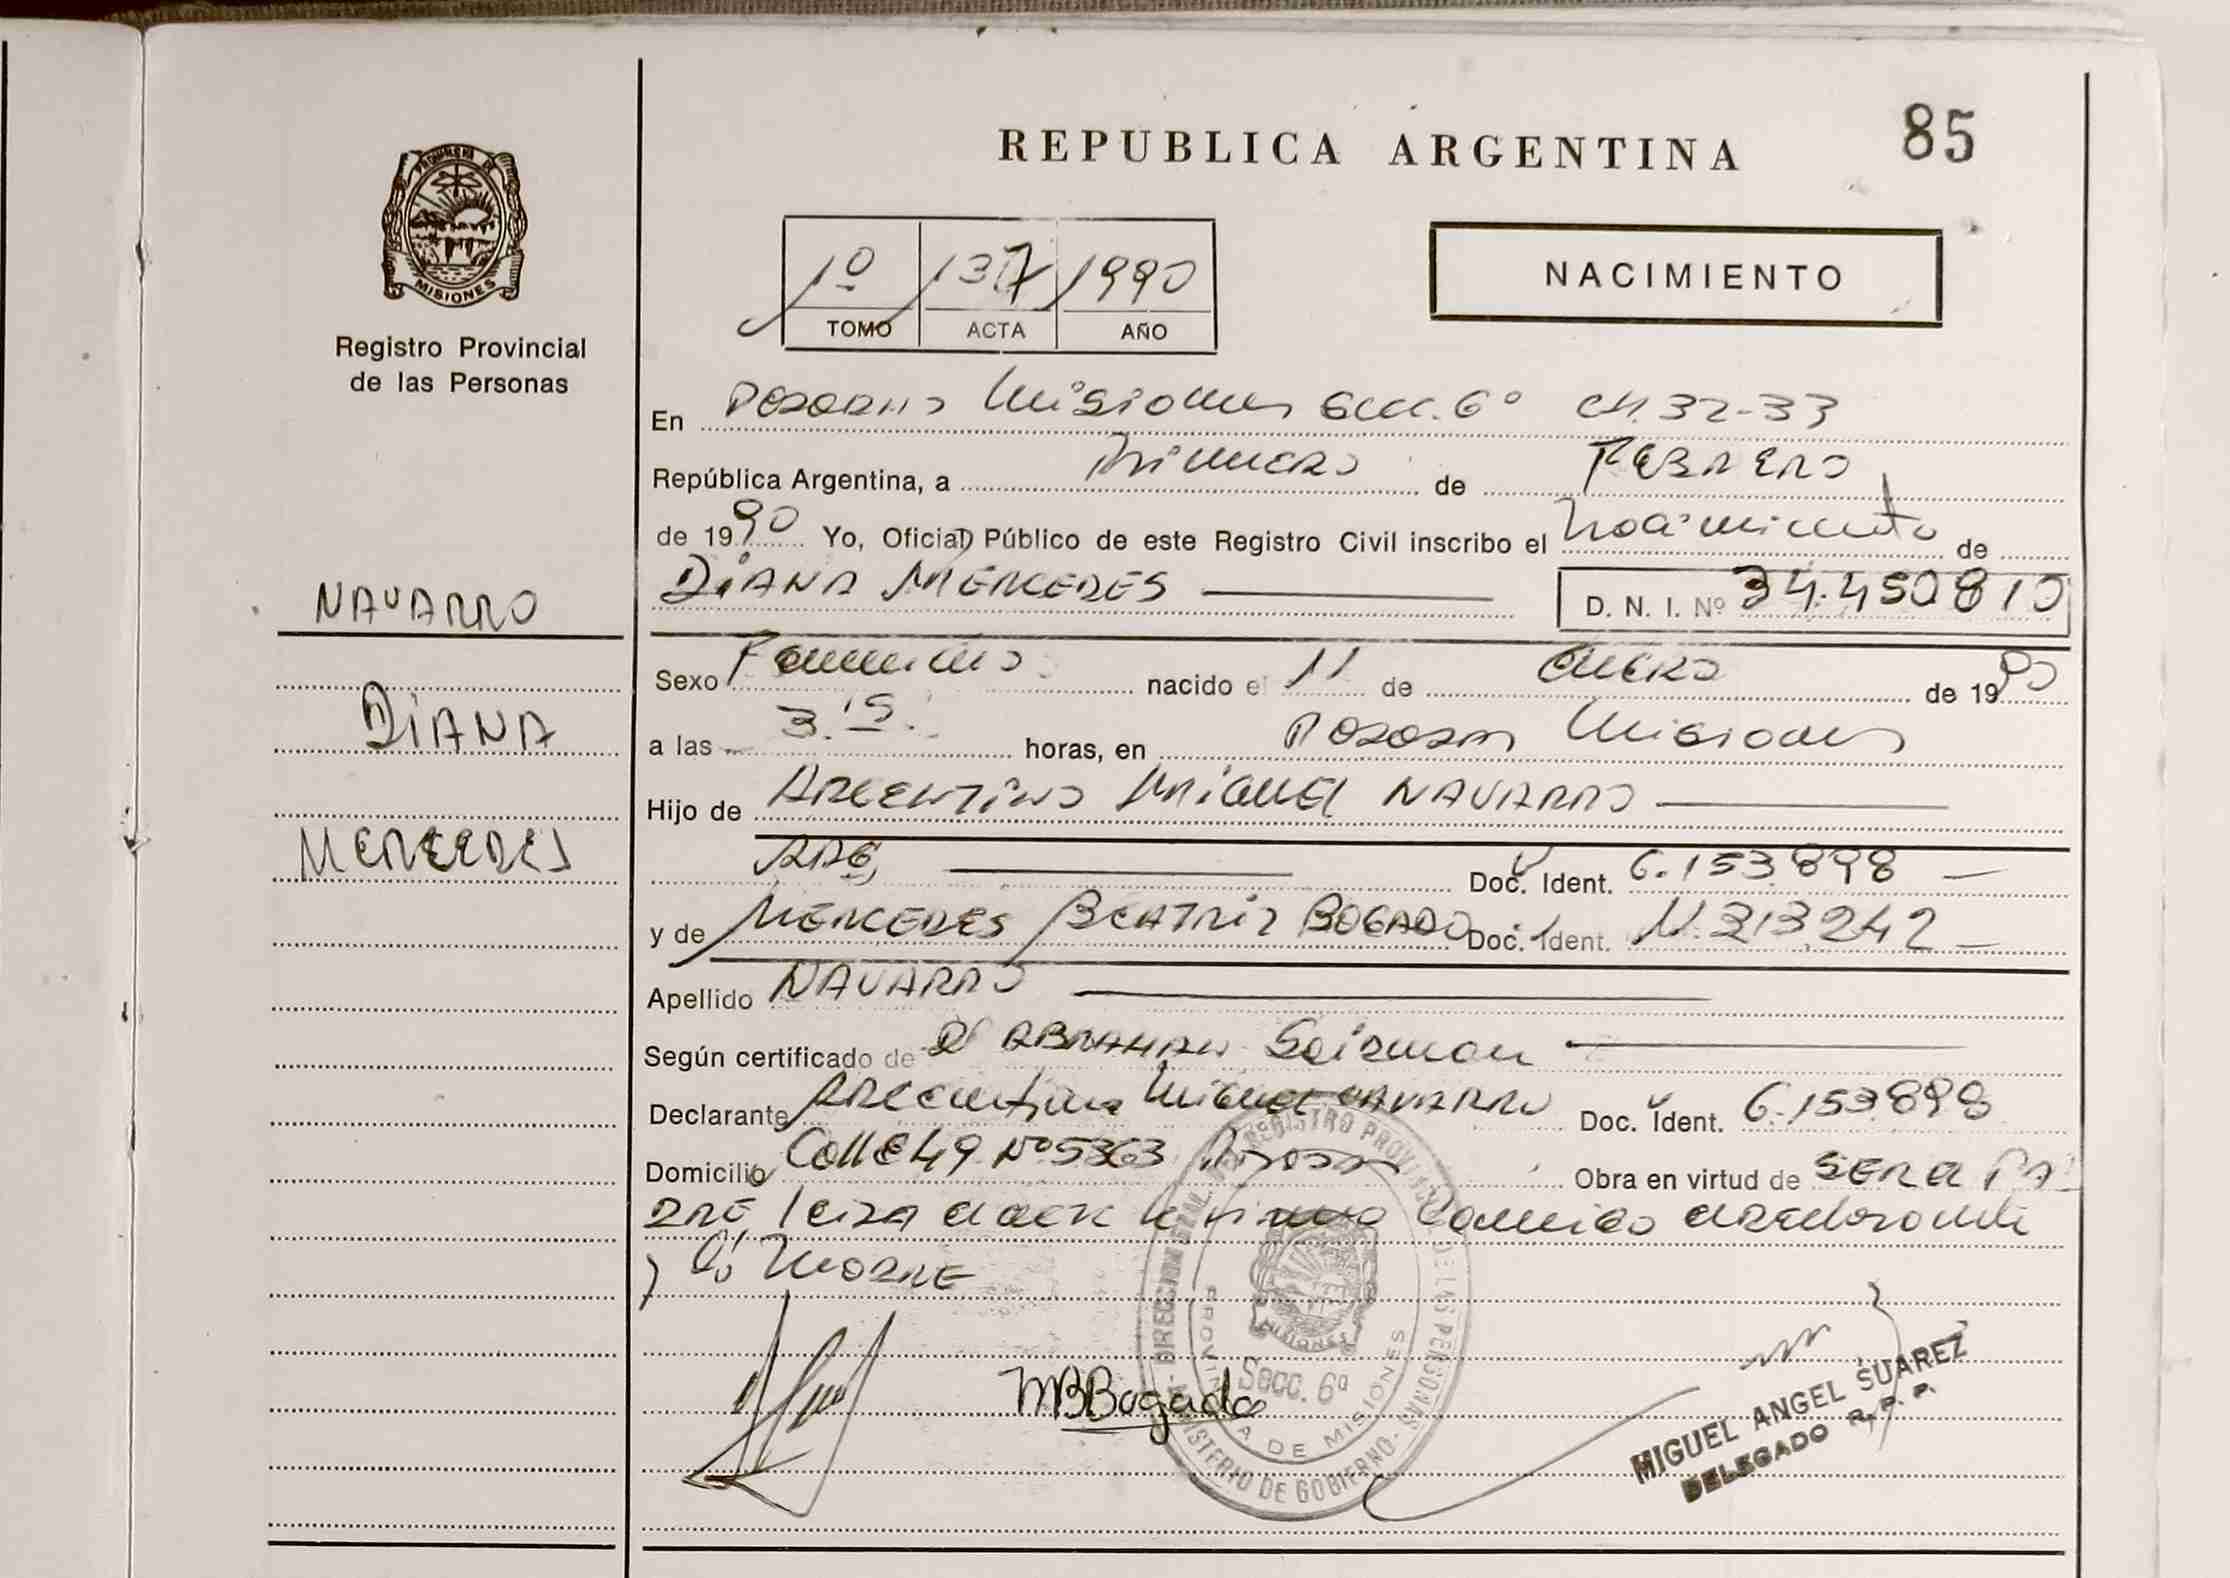 REPUBLICA ARGENTINA
85
PROVINCIA DE
MISIONES
Registro Provincial
de las Personas
1º 137 1990
TOMO ACTA AÑO
NACIMIENTO
En Posadas Misiones Secc. 6º CH. 32-33
República Argentina, a Primero de FEBRERO
de 1990 Yo, Oficial Público de este Registro Civil inscribo el nacimiento de
DIANA MERCEDES D. N. I. Nº 34.450810
NAVARRO
DIANA
MERCEDES
Sexo Femenino nacido el 11 de enero de 1990
a las 3.15. horas, en Posadas Misiones
Hijo de ARGENTINO MIGUEL NAVARRO
ARG, Doc. Ident. 6.153.898
y de MERCEDES BEATRIZ BOGADO Doc. Ident. 11.313.242
Apellido NAVARRO
Según certificado de Dr ABRAHAN
Declarante ARGentino Miguel NAVARRO Doc. Ident. 6.153898
Domicilio Calle 49 Nº 5363 Posadas Obra en virtud de SER el PA
DRE, leida el acta la firma conmigo el declarante
y la MADRE
MBBogado
DIRECCION GRAL. DEL REGISTRO PROVINCIAL DE LAS PERSONAS
MINISTERIO DE GOBIERNO
PROVINCIA DE MISIONES
MISIONES
Secc. 6ª
MIGUEL ANGEL SUAREZ
DELEGADO R. P. P.